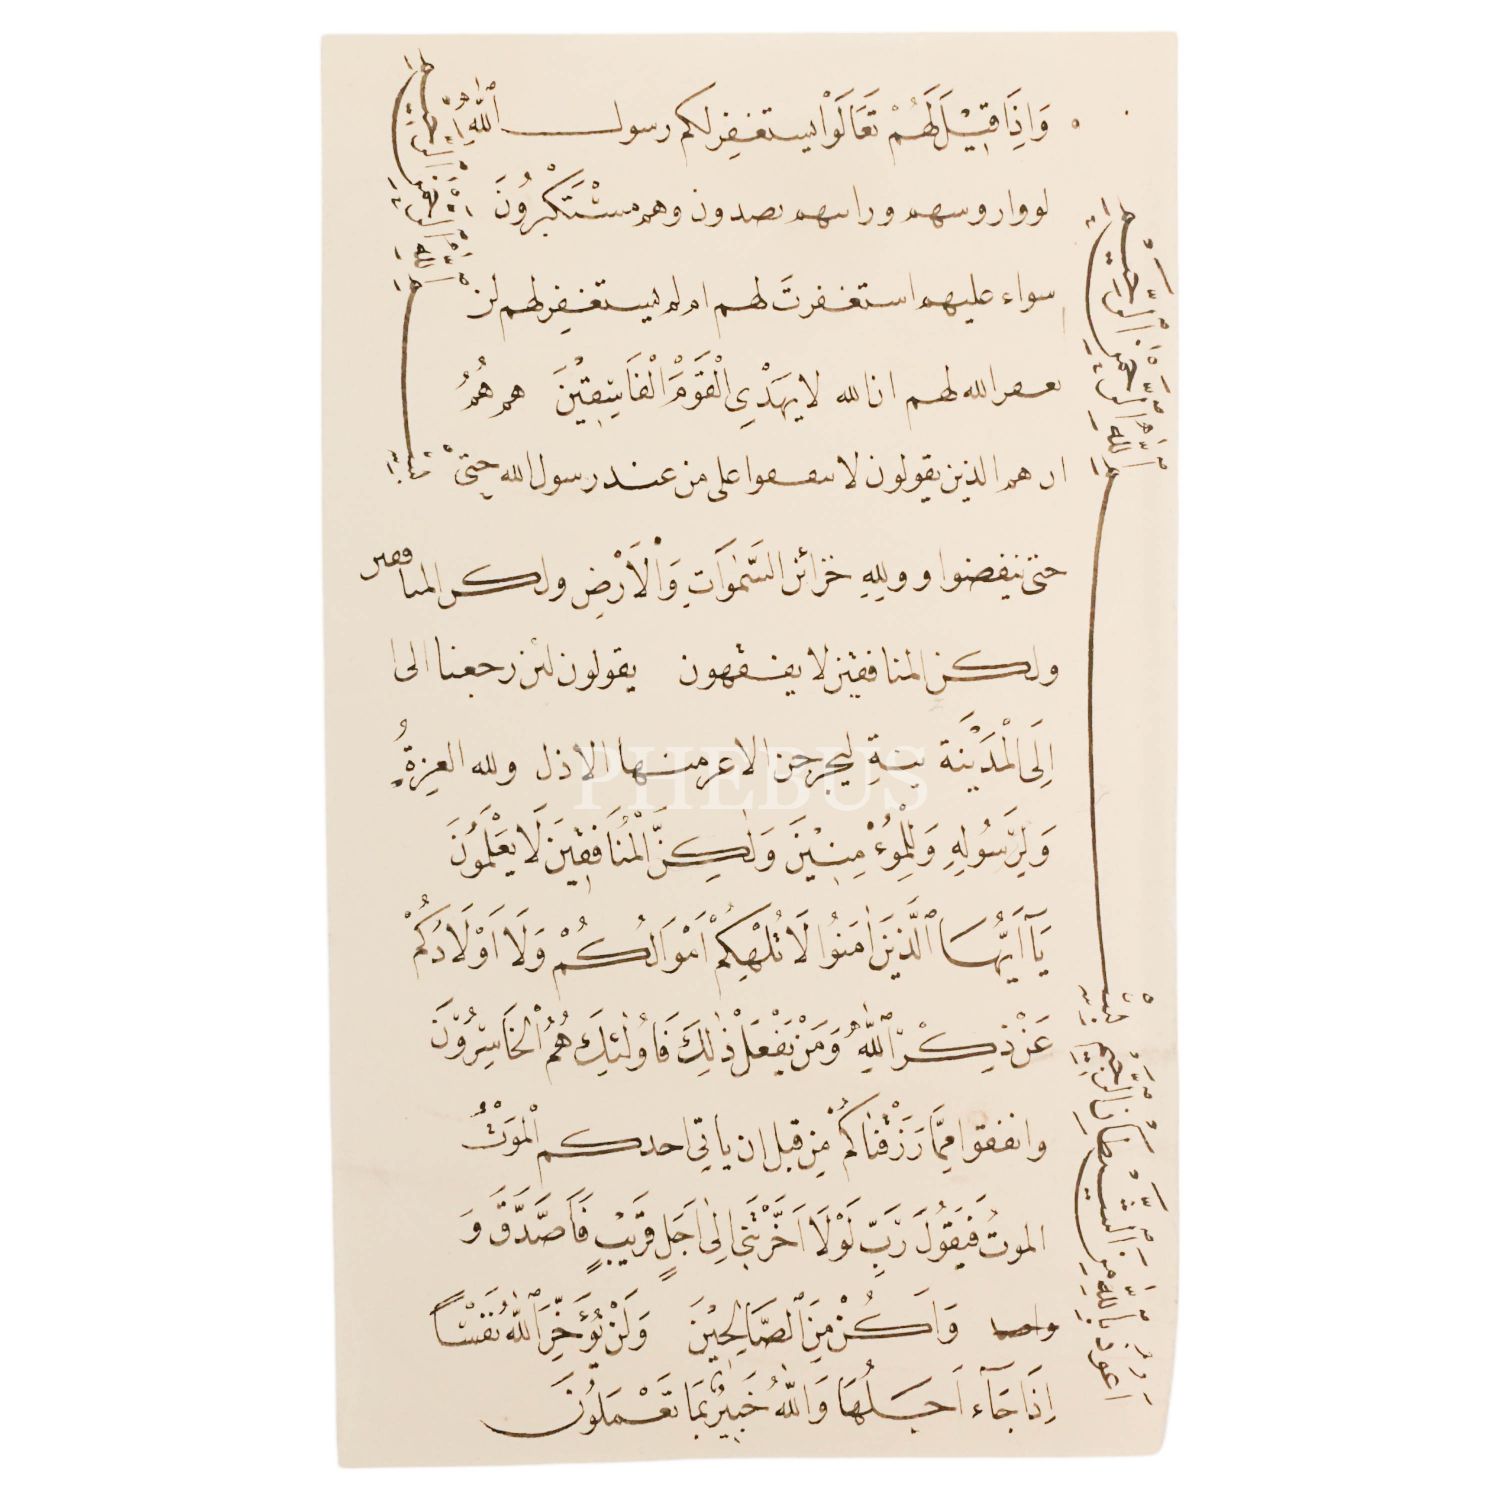 وَاِذَا قِيْلَ لَهُمْ تَعَالَوْا يستغفِر لكم رسول اللّٰهِ
لووا روسهم وراىىهم ىصدون وهم مسْتَكْبِرُونَ
سواء عليهم استغفرتَ لهم ام لم يستغفِر لهم لن
ىعفر الله لهم ان الله لا يَهْدِي الْقَوْمَ الْفَاسِقِيْنَ هم هُمُ
ار هم الذين يقولون لا ىىفقوا على من عند رسول الله حتىٰ
حتىٰ ينفضوا و ولِلهِ خزائن السَّمٰوَاتِ وَالْاَرْضِ ولكن المىافقىن
ولكن المنافقين لا يفقهون يقولون لئن رجعنا الى ا
اِلَى الْمَدَيْنَة ينةِ ليخرجن الاعز منها الاذل ولله العزةُ
وَلِرَسُولِهِ وَلِلْمُؤْمِنِيْنَ وَلٰكِنَّ الْمُنَافِقِينَ لَا يَعْلَمُونَ
يَآ اَيُّهَا الَّذِينَ اٰمَنُوا لَا تُلْهِكُمْ اَمْوَالُكُمْ وَلَا اَوْلَادُكُمْ
عَنْ ذِكْرِ اللّٰهِ وَمَنْ يَفْعَلْ ذٰلِكَ فَاُولٰئِكَ هُمُ الْخَاسِرُوْنَ
وانفقوا مِمَّا رَزَقْنَاكُمْ مِنْ قبل ان ياتي احدكم الْمَوْتُ
الموتُ فَيَقُولَ رَبِّ لَوْلَا اَخَّرْتَنِي اِلٰى اَجَلٍ قَرِيْبٍ فَاَصَّدَّقَ وَ
واصا وَاَكُنْ مِنَ الصَّالِحِيْنَ وَلَنْ يُؤَخِّرَ اللّٰهُ نَفْسًا
اِذَا جَآءَ اَجَلُهَا وَاللّٰهُ خَبِيْرٌ بِمَا تَعْمَلُونَ
اعوذ بِاللّٰهِ مِنَ الشَّيْطَانِ الرَّجِيمِ
بِسْمِ اللّٰهِ الرَّحْمٰنِ الرَّحِيْمِ
بِسْمِ اللّٰهِ الرَّحْمٰنِ الرَّحِيمِ
PHEBUS